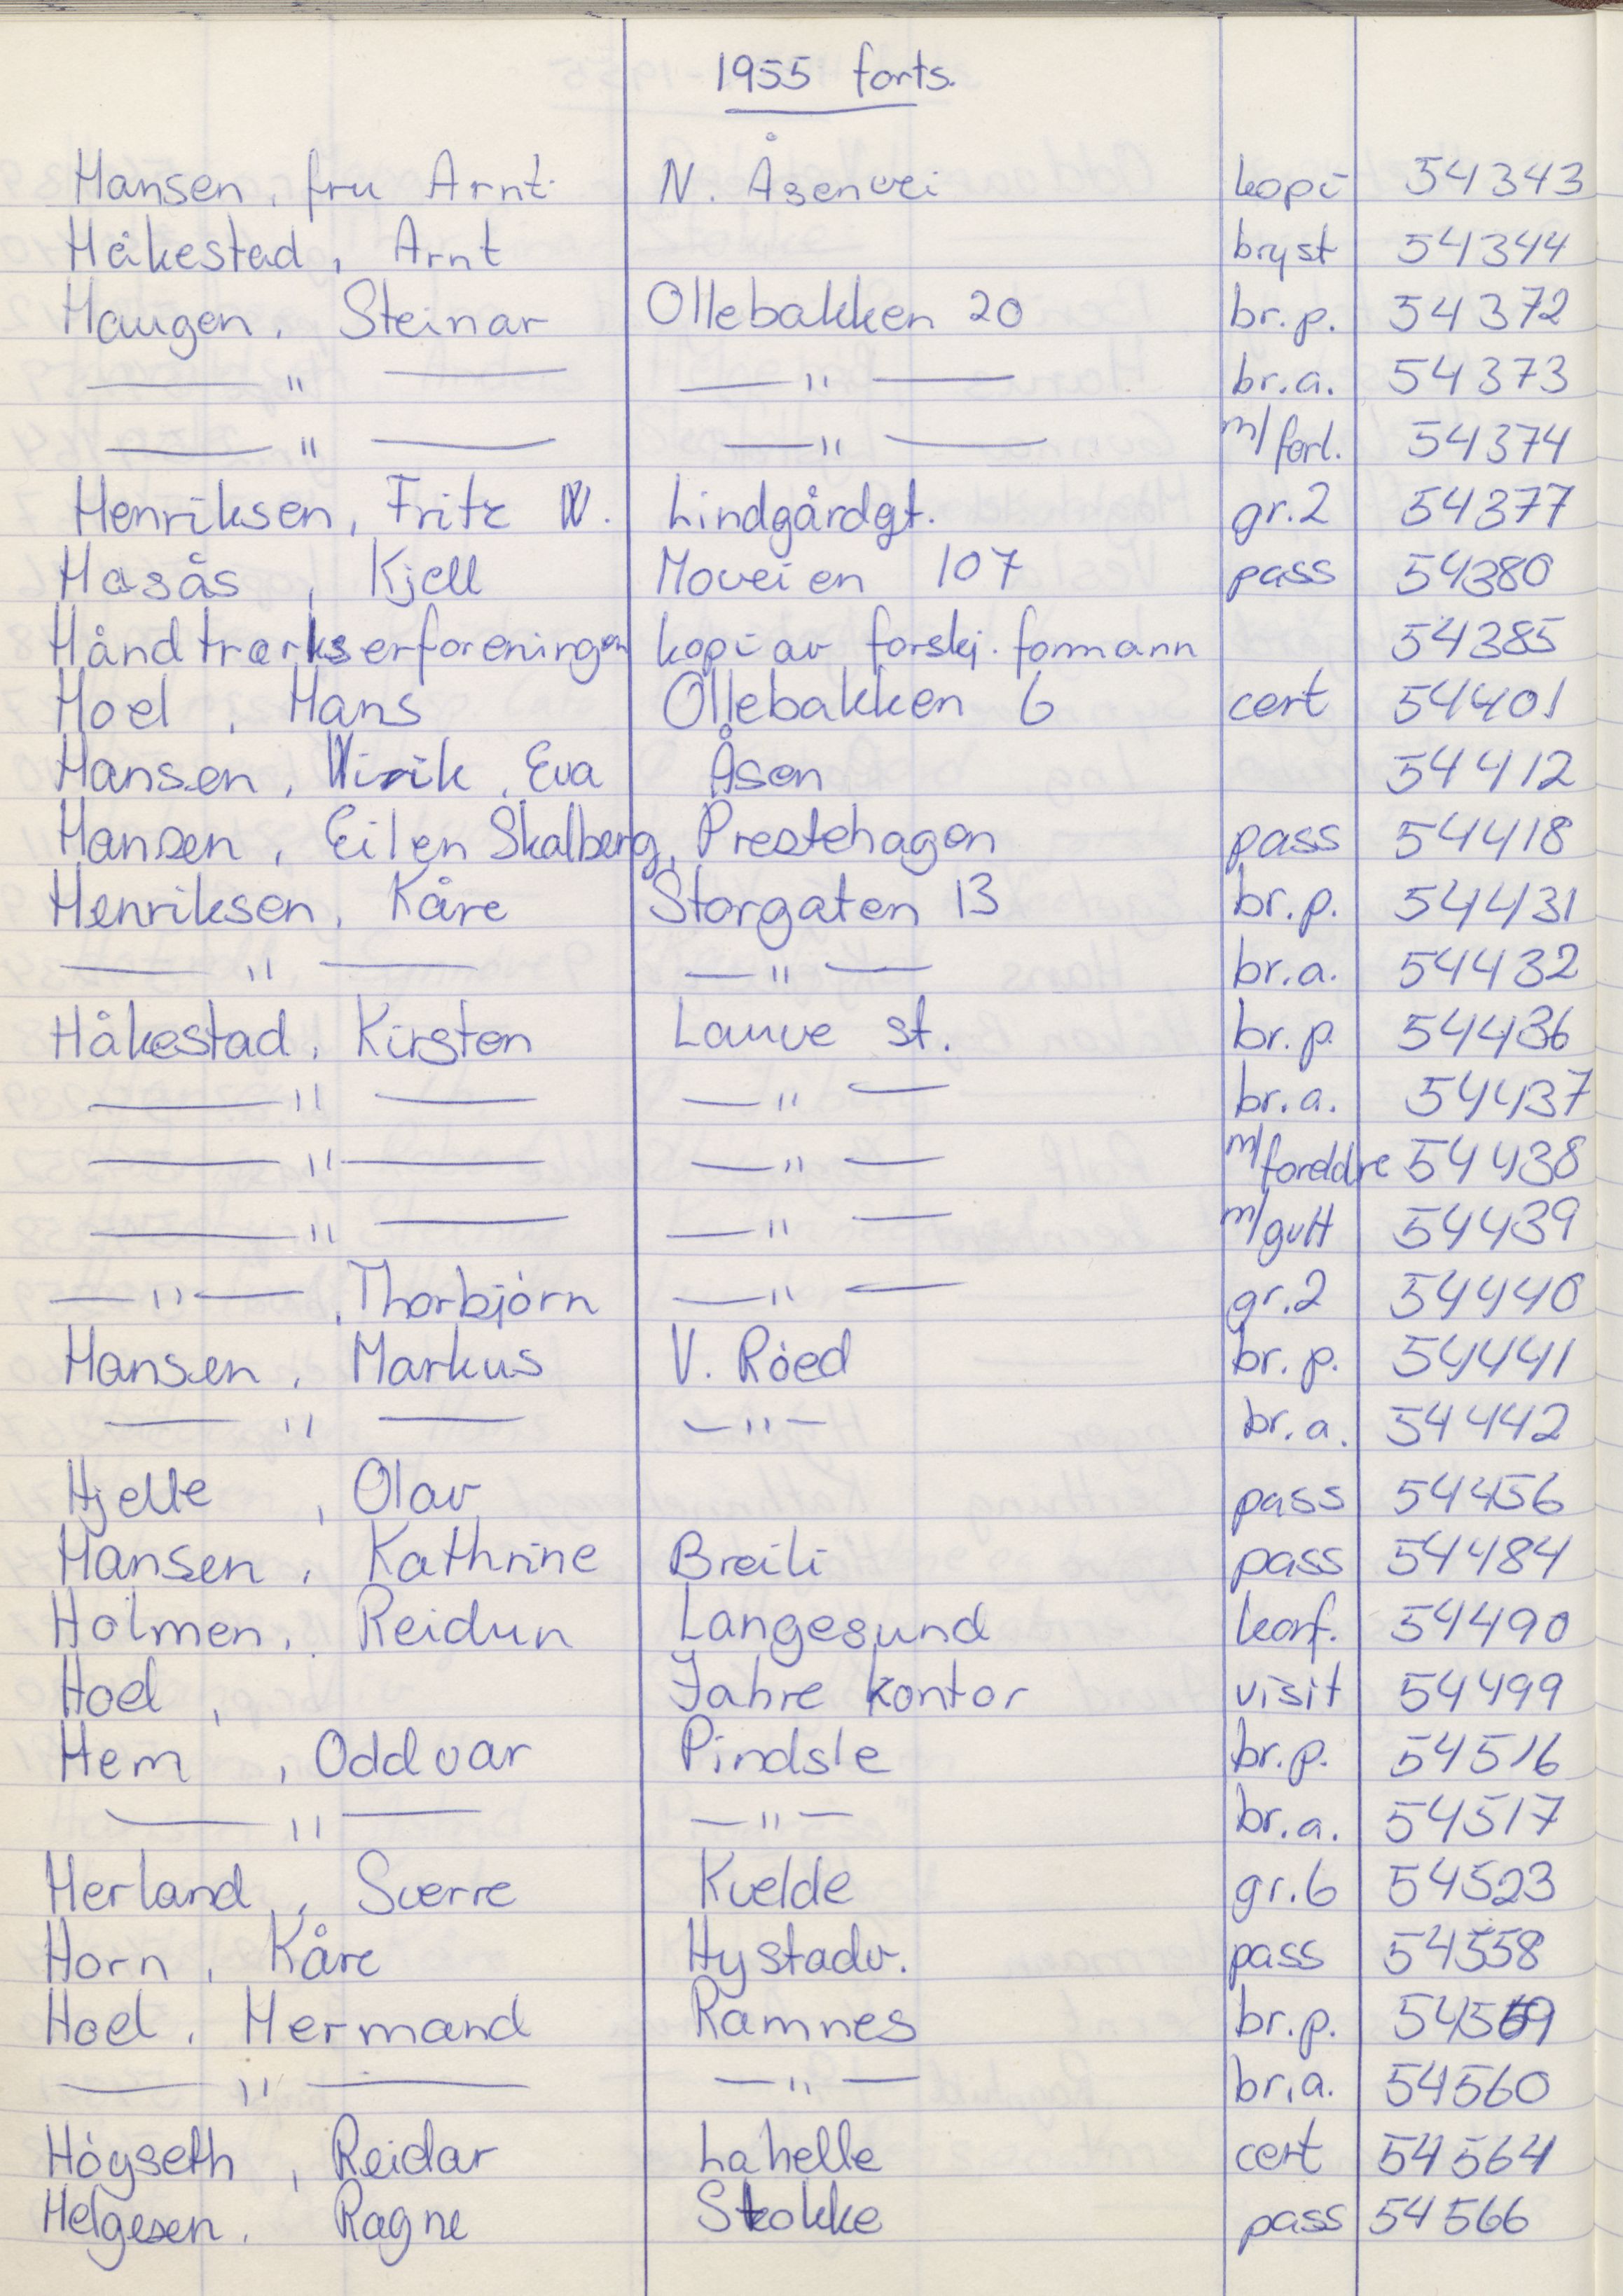 1955 forts.
Hansen, fru Arnt N. Åsenvei kopi 54343
Håkestad, Arnt bryst 54344
Haugen, Steinar Ollebakken 20 br.p. 54372
— " — — " — br.a. 54373
— " — — " — m/forl. 54374
Henriksen, Fritz W. Lindgårdgt. gr.2 54377
Hasås, Kjell Moveien 107 pass 54380
Håndtverkserforeningen kopi av forskj. formann 54385
Hoel, Hans Ollebakken 6 cert 54401
Hansen, Virik, Eva Åsen 54412
Hansen, Eilen Skalberg, Prestehagen pass 54418
Henriksen, Kåre Storgaten 13 br.p. 54431
— " — — " — br.a. 54432
Håkestad, Kirsten Lauve st. br.p. 54436
— " — — " — br.a. 54437
— " — — " — m/foreldre 54438
— " — — " — m/gutt 54439
— " —, Thorbjörn — " — gr.2 54440
Hansen, Markus V. Röed br.p. 54441
— " — — " — br.a. 54442
Hjelle, Olav pass 54456
Hansen, Kathrine Breili pass 54484
Holmen, Reidun Langesund konf. 54490
Hoel, Jahre kontor visit 54499
Hem, Oddvar Pindsle br.p. 54516
— " — — " — br.a. 54517
Herland, Sverre Kvelde gr.6 54523
Horn, Kåre Hystadv. pass 54558
Hoel, Hermand Ramnes br.p. 54559
— " — — " — br.a. 54560
Högseth, Reidar Lahelle cert 54564
Helgesen, Ragne Stokke pass 54566